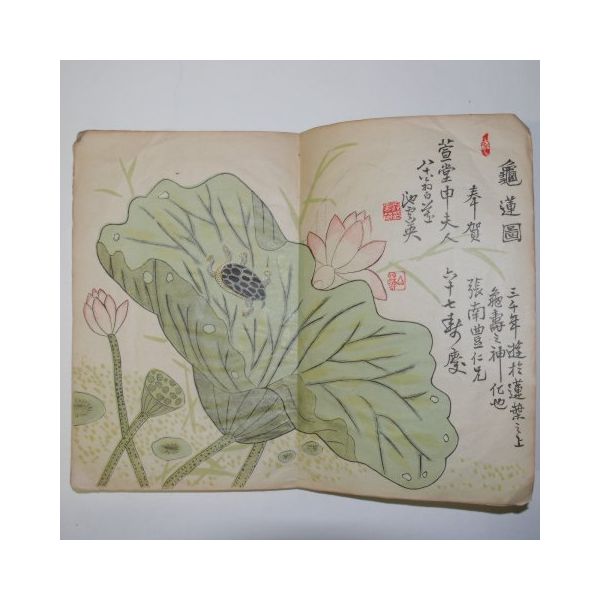 龜蓮圖
三千年遊於蓮葉之上
龜壽之神化也
張南豊仁兄
奉賀
六十七壽慶
萱堂申夫人
池雲英